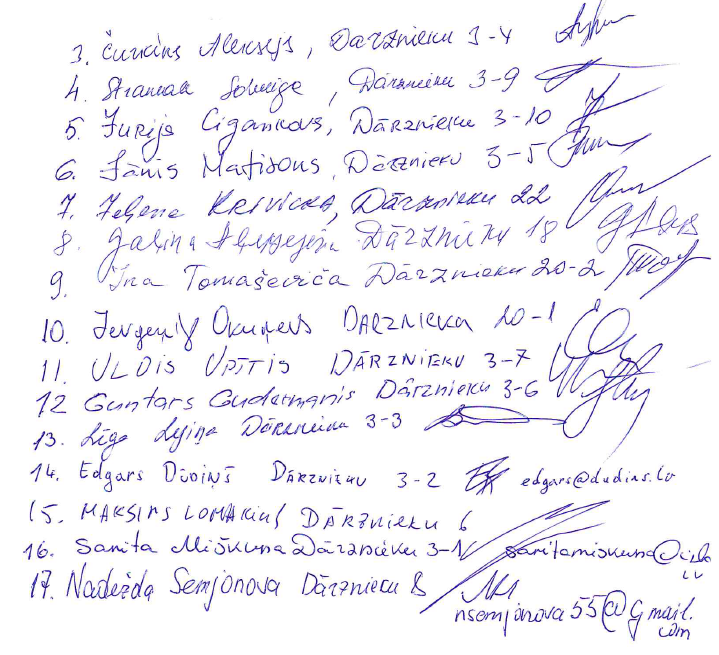 3. Čurkins Aleksejs, Dārznieku 3-4
4. Solveiga, Dārznieku 3-9
5. Jurijs Cigankovs, Dārznieku 3-10
6. Jānis Matisons, Dārznieku 3-5
7. Jeļena Krivicka, Dārznieku 22
8. Gaļina Dārznieku 18
9. Ina Tomaševiča Dārznieku 20-2
10. Jevgeņijs Okuņevs Darznieka 20-1
11. Uldis Upītis Dārznieku 3-7
12 Guntars Gudermanis Dārznieku 3-6
13. Līga Dārznieku 3-3
14. Edgars Dūdiņš Dārznieku 3-2 edgars@dudins.lv
15. Maksims Lomakins Dārznieku 6
16. Sanita Miškuna Dārznieku 3-1 sanitamiskuna@inbox.lv
17. Nadežda Semjonova Dārznieku 8
nsemjonova55@gmail.com